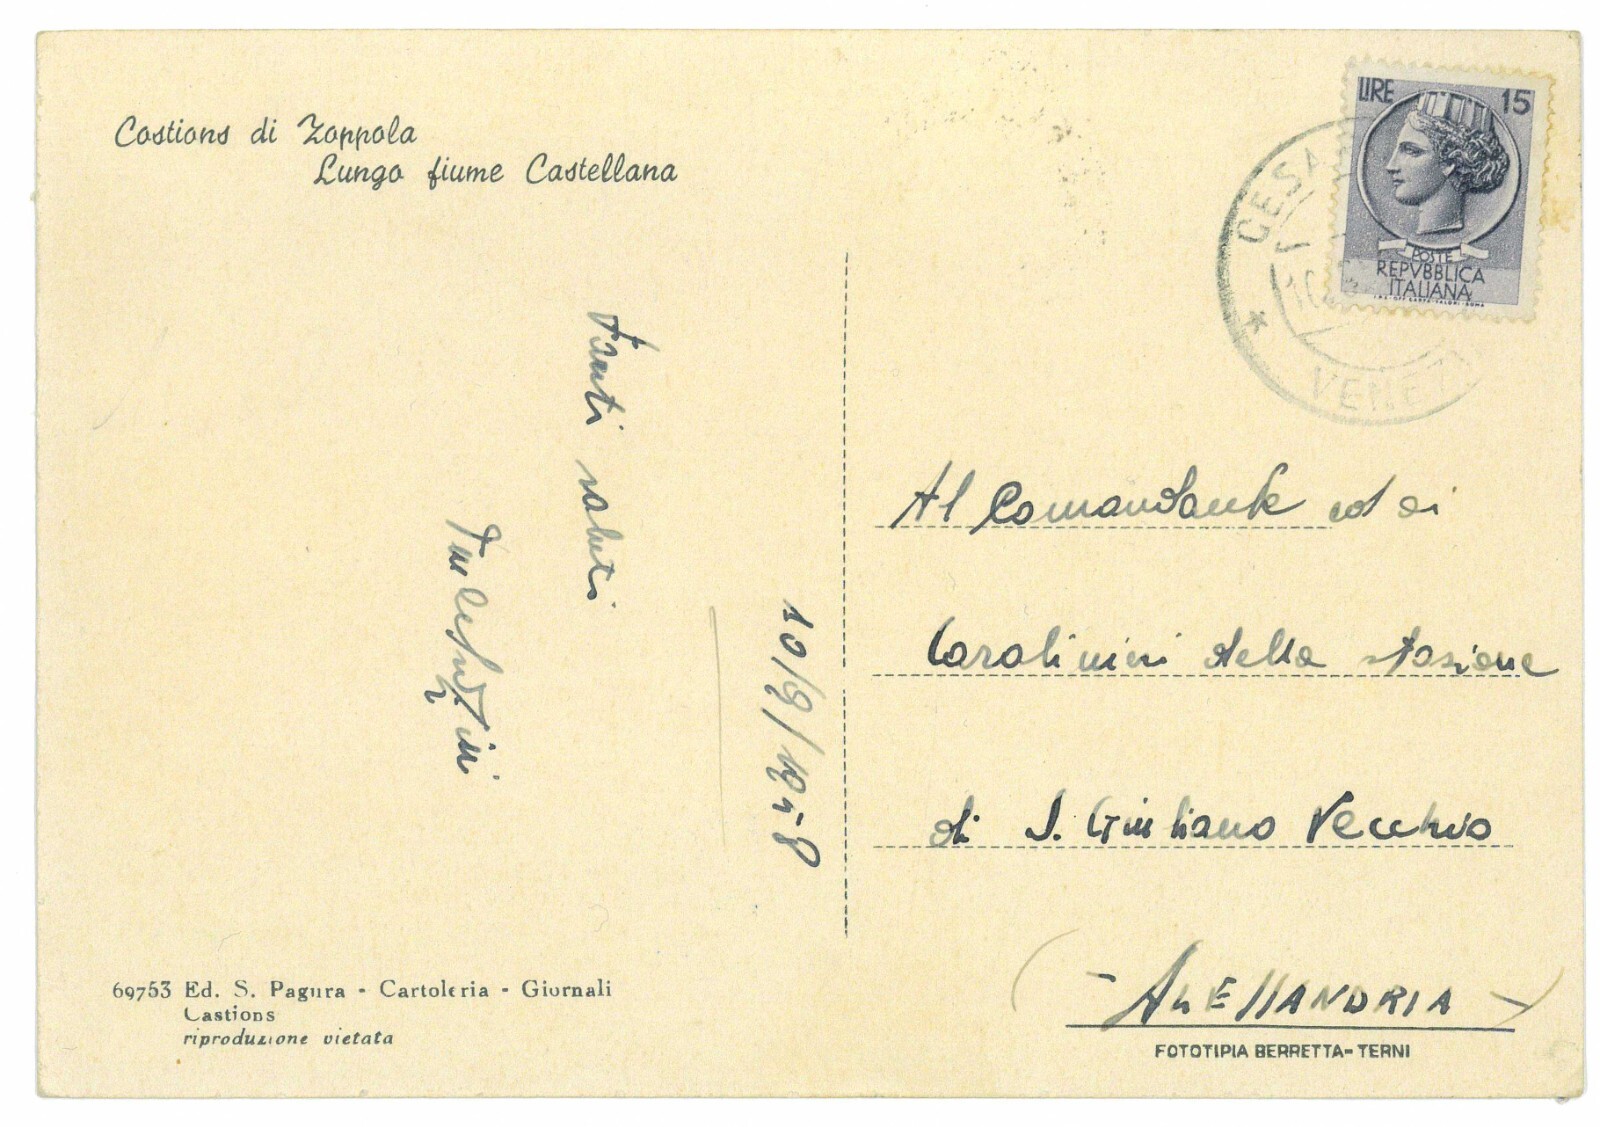 Castions di Zoppola
Lungo fiume Castellana
LIRE 15
POSTE
REPVBBLICA
ITALIANA
CESA
VENEZ
Tanti saluti
10/9/1958
Al Comandante ed ai
Carabinieri della stazione
di S. Giuliano Vecchio
(- ALESSANDRIA -)
69753 Ed. S. Pagura - Cartoleria - Giornali
Castions
riproduzione vietata
FOTOTIPIA BERRETTA - TERNI